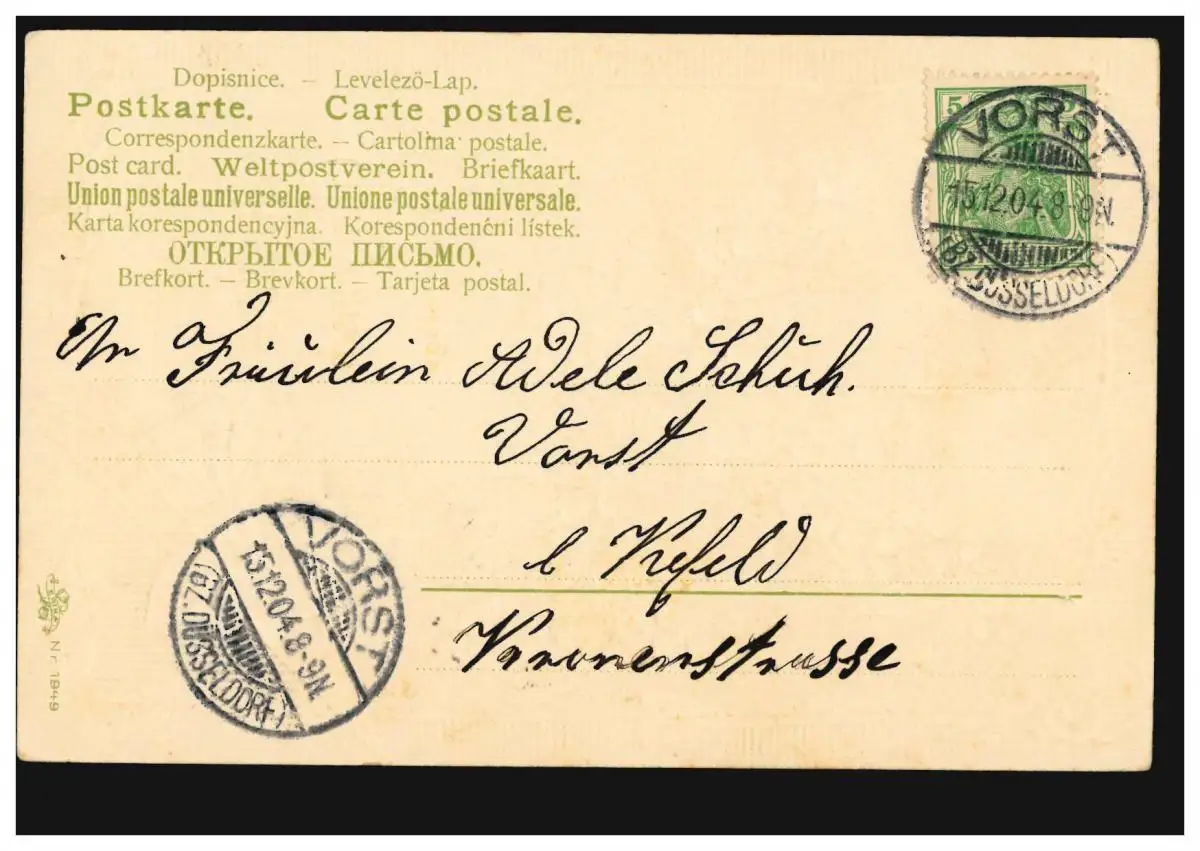 Dopisnice. – Levelezö-Lap.
Postkarte. Carte postale.
Correspondenzkarte. – Cartolina postale.
Post card. Weltpostverein. Briefkaart.
Union postale universelle. Unione postale universale.
Karta korespondencyjna. Korespondenčni lístek.
ОТКРЫТОЕ ПИСЬМО.
Brefkort. – Brevkort. – Tarjeta postal.
5 5
VORST
15.12.04.8-9N.
(BZ. DÜSSELDORF)
Fräulein Adele Schuh.
Vorst
b Krefeld
Kronenstrasse
VORST
15.12.04.8-9N.
(BZ. DÜSSELDORF)
Nr. 1949